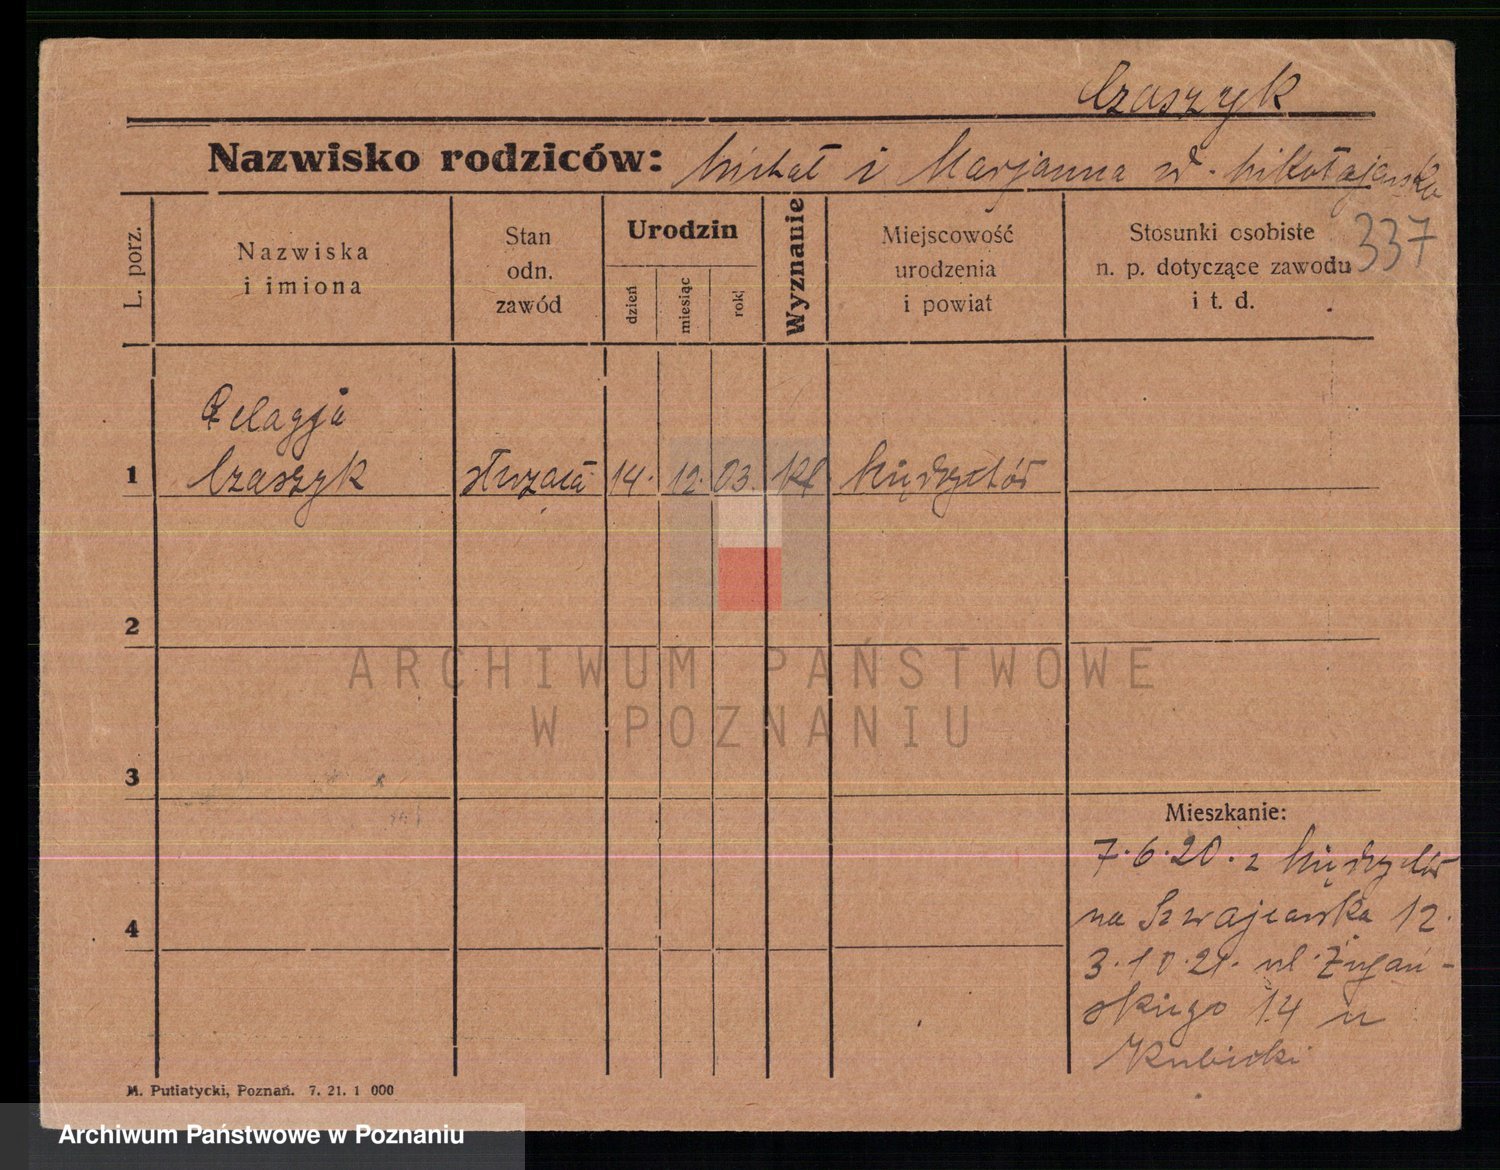 Czaszyk
Nazwisko rodziców: Michał i Marjanna d. Mikołajewska
337
L. porz.
Nazwiska
i imiona
Stan
odn.
zawód
Urodzin
dzień
miesiąc
rok
Wyznanie
Miejscowość
urodzenia
i powiat
Stosunki osobiste
n. p. dotyczące zawodu
i t. d.
Pelagja
1 Czaszyk służąca 14. 12. 03. kł Międzychód
2
3
4
Mieszkanie:
7.6.20. z Międzychód
na Szwajcarska 12.
3.10.21. ul.
skiego 14 u
Kubicki
M. Putiatycki, Poznań. 7. 21. 1 000
ARCHIWUM PAŃSTWOWE
W POZNANIU
Archiwum Państwowe w Poznaniu